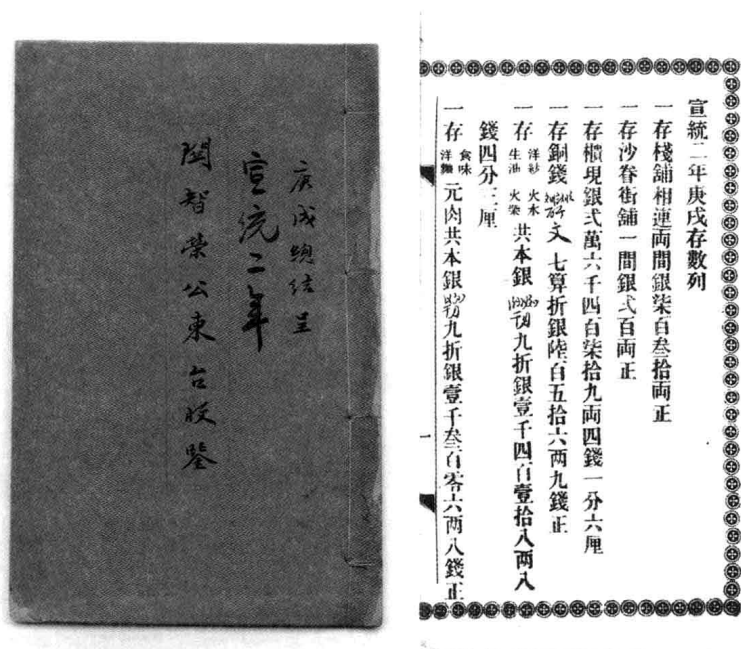 庚戌總結呈
宣統二年
閩智榮公東台收鑒
宣統二年庚戌存數列
一存棧舖相連両間銀柒百叁拾両正
一存沙脊街舖一間銀弍百両正
一存櫃現銀弍萬六千四百柒拾九両四錢一分六厘
一存銅錢 文七算折銀陸百五拾六両九錢正
一存洋彩火水生油火柴共本銀 九折銀壹千四百壹拾八両八
錢四分三厘
一存食味洋雜元肉共本銀 九折銀壹千叁百零六両八錢正
一